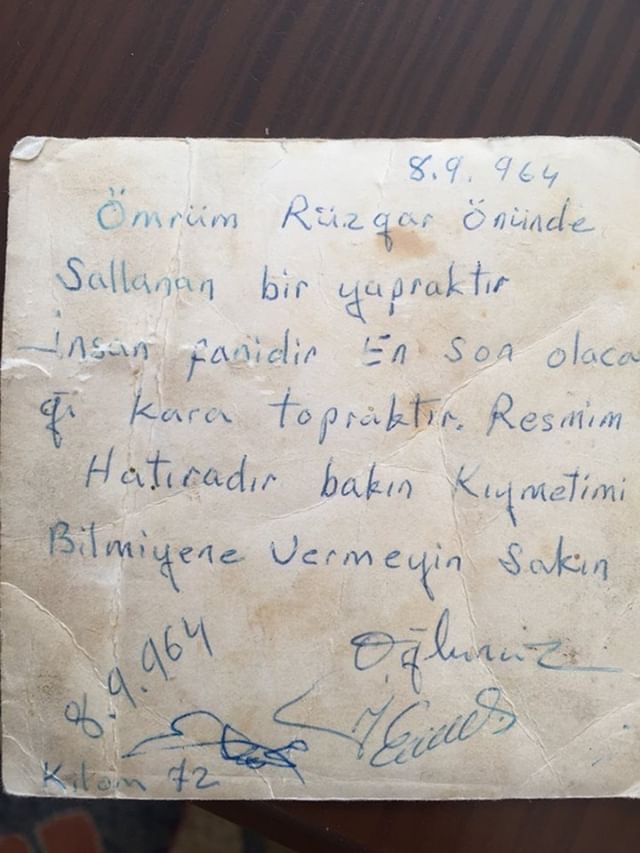 8.9.964
Ömrüm Rüzgar Önünde
Sallanan bir yapraktır
İnsan fanidir En son olaca
ğı kara topraktır. Resmim
Hatıradır bakın Kıymetimi
Bilmiyene Vermeyin Sakın
Oğlunuz
8.9.964
Kilom 72